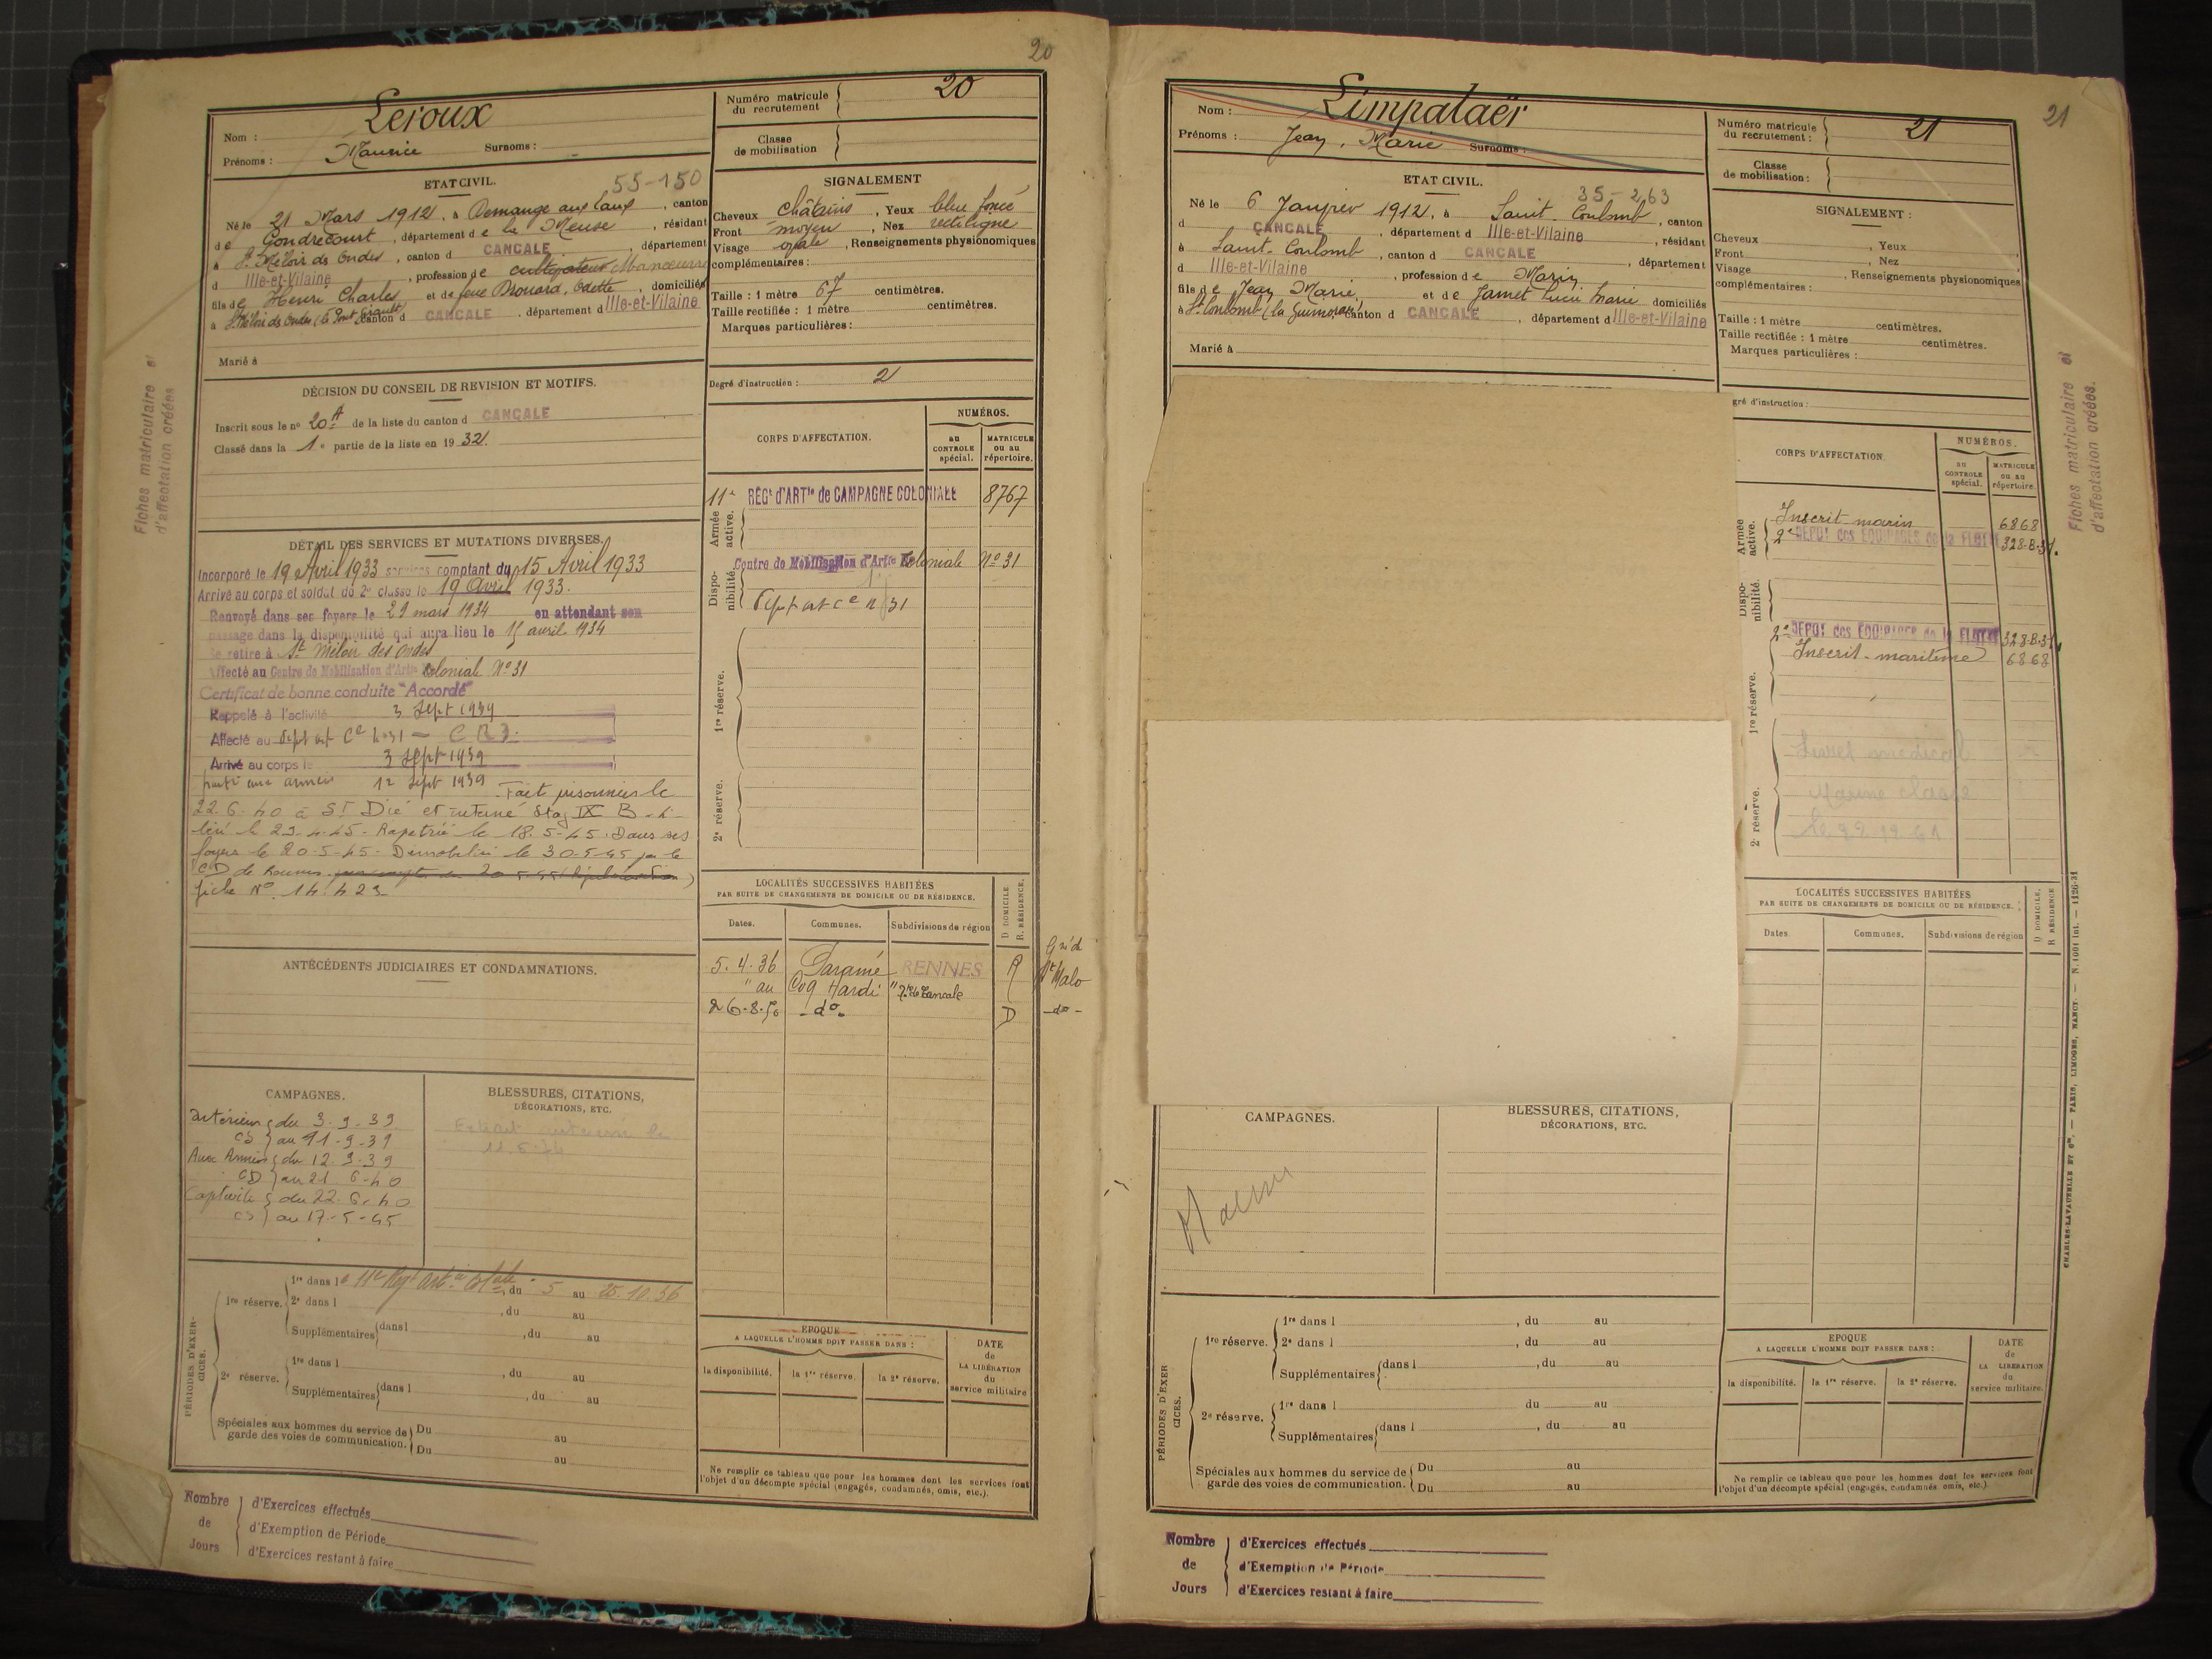 20
Leroux
Nom :
Prénoms : Maurice Surnoms :
Numéro matricule du recrutement 20
Classe de mobilisation
ETAT CIVIL.
55-150
Né le 21 Mars 1912, à Demange aux Eaux, canton
de Gondrecourt, département de la Meuse, résidant
à St Méloir des Ondes, canton d CANCALE, département
d Ille-et-Vilaine, profession de cultivateur Manœuvre
fils de Henri Charles et de feue Drouard, Odette, domiciliés
à St Méloir des Ondes (le Pont Girault) canton d CANCALE, département d Ille-et-Vilaine
Marié à
SIGNALEMENT
Cheveux châtains, Yeux bleu foncé
Front moyen, Nez rectiligne
Visage ovale, Renseignements physionomiques
complémentaires :
Taille : 1 mètre 67 centimètres.
Taille rectifiée : 1 mètre centimètres.
Marques particulières :
Degré d'instruction : 2
DÉCISION DU CONSEIL DE REVISION ET MOTIFS.
Inscrit sous le nº 20 A de la liste du canton d CANCALE
Classé dans la 1e partie de la liste en 1932.
Fiches matriculaire et
d'affectation créées
DÉTAIL DES SERVICES ET MUTATIONS DIVERSES.
Incorporé le 19 Avril 1933 services comptant du 15 Avril 1933
Arrivé au corps et soldat de 2e classe le 19 Avril 1933.
Renvoyé dans ses foyers le 29 mars 1934 en attendant son
passage dans la disponibilité qui aura lieu le 15 avril 1934
Se retire à St Méloir des Ondes
Affecté au Centre de Mobilisation d'Artie Coloniale Nº 31
Certificat de bonne conduite "Accordé"
Rappelé à l'activité 3 Sept 1939
Affecté au Dépôt art Ce Nº 31
Arrivé au corps le 3 Sept 1939
parti aux armées 12 Sept 1939 Fait prisonnier le
22.6.40 à St Dié et interné Stag IX B - li-
béré le 29.4.45 - Rapatrié le 18.5.45. Dans ses
foyers le 20.5.45 - Démobilisé le 30.5.45 par le
CD de Rennes
fiche Nº 14.423
CORPS D'AFFECTATION.
NUMÉROS.
au CONTROLE spécial.
MATRICULE ou au répertoire.
Armée active.
11e RÉGt d'ARTie de CAMPAGNE COLONIALE 8767
Disponibilité.
Centre de Mobilisation d'Artie Coloniale Nº 31
Dépôt art Ce n 31
1re réserve.
2e réserve.
LOCALITÉS SUCCESSIVES HABITÉES
PAR SUITE DE CHANGEMENTS DE DOMICILE OU DE RÉSIDENCE.
Dates. Communes. Subdivisions de région D DOMICILE R. RÉSIDENCE.
5.4.36 Paramé RENNES R Grie d St Malo
" au Coq Hardi " r. de Cancale
26.8.50 - do - D - do -
ANTÉCÉDENTS JUDICIAIRES ET CONDAMNATIONS.
CAMPAGNES.
Intérieur du 3.9.39
CS au 11.9.39
Aux Armées du 12.9.39
CD au 21.6.40
Captivité du 22.6.40
CS au 17-5-45
BLESSURES, CITATIONS,
DÉCORATIONS, ETC.
PÉRIODES D'EXERCICES.
1re réserve. 1re dans le 11e Regt art ie Clale, du 5 au 25.10.36
2e dans l , du au
Supplémentaires dans l , du au
2e réserve. 1re dans l , du au
Supplémentaires dans l , du au
Spéciales aux hommes du service de garde des voies de communication. Du au
Du au
EPOQUE
A LAQUELLE L'HOMME DOIT PASSER DANS :
la disponibilité. la 1re réserve. la 2e réserve.
DATE de LA LIBÉRATION du service militaire
Ne remplir ce tableau que pour les hommes dont les services font
l'objet d'un décompte spécial (engagés, condamnés, omis, etc.).
Nombre de Jours
d'Exercices effectués
d'Exemption de Période
d'Exercices restant à faire
21
Limpalaër
Nom :
Prénoms : Jean, Marie Surnoms :
Numéro matricule du recrutement : 21
Classe de mobilisation :
ETAT CIVIL.
35-263
Né le 6 Janvier 1912, à Saint-Coulomb, canton
d CANCALE, département d Ille-et-Vilaine, résidant
à Saint-Coulomb, canton d CANCALE, département
d Ille-et-Vilaine, profession de Marin
fils de Jean Marie, et de Jamet Lucie Marie domiciliés
à St Coulomb (la Guimorais) canton d CANCALE, département d Ille-et-Vilaine
Marié à
SIGNALEMENT :
Cheveux , Yeux
Front , Nez
Visage , Renseignements physionomiques
complémentaires :
Taille : 1 mètre centimètres.
Taille rectifiée : 1 mètre centimètres.
Marques particulières :
gré d'instruction :
Fiches matriculaire et
d'affectation créées.
CORPS D'AFFECTATION.
NUMÉROS.
au CONTROLE spécial.
MATRICULE ou au répertoire.
Armée active.
Inscrit marin 6868
2e DÉPOT des EQUIPAGES de la FLOTTE 328-B-31.
Disponibilité.
2e DÉPOT des EQUIPAGES de la FLOTTE 328-B-31.
Inscrit-maritime 6868
1re réserve.
Livret médical
Marine classé
2e réserve.
LOCALITÉS SUCCESSIVES HABITÉES
PAR SUITE DE CHANGEMENTS DE DOMICILE OU DE RÉSIDENCE.
Dates. Communes. Subdivisions de région D DOMICILE, R RÉSIDENCE
CAMPAGNES.
Marin
BLESSURES, CITATIONS,
DÉCORATIONS, ETC.
PÉRIODES D'EXERCICES.
1re réserve. 1re dans l , du au
2e dans l , du au
Supplémentaires dans l , du au
2e réserve. 1re dans l du au
Supplémentaires dans l , du au
Spéciales aux hommes du service de garde des voies de communication. Du au
Du au
EPOQUE
A LAQUELLE L'HOMME DOIT PASSER DANS :
la disponibilité. la 1re réserve. la 2e réserve.
DATE de LA LIBÉRATION du service militaire.
Ne remplir ce tableau que pour les hommes dont les services font
l'objet d'un décompte spécial (engagés, condamnés omis, etc.)
CHARLES-LAVAUZELLE ET Cie. — PARIS, LIMOGES, NANCY. — N. 1001 int. — 1126-31
Nombre de Jours
d'Exercices effectués
d'Exemption de Période
d'Exercices restant à faire